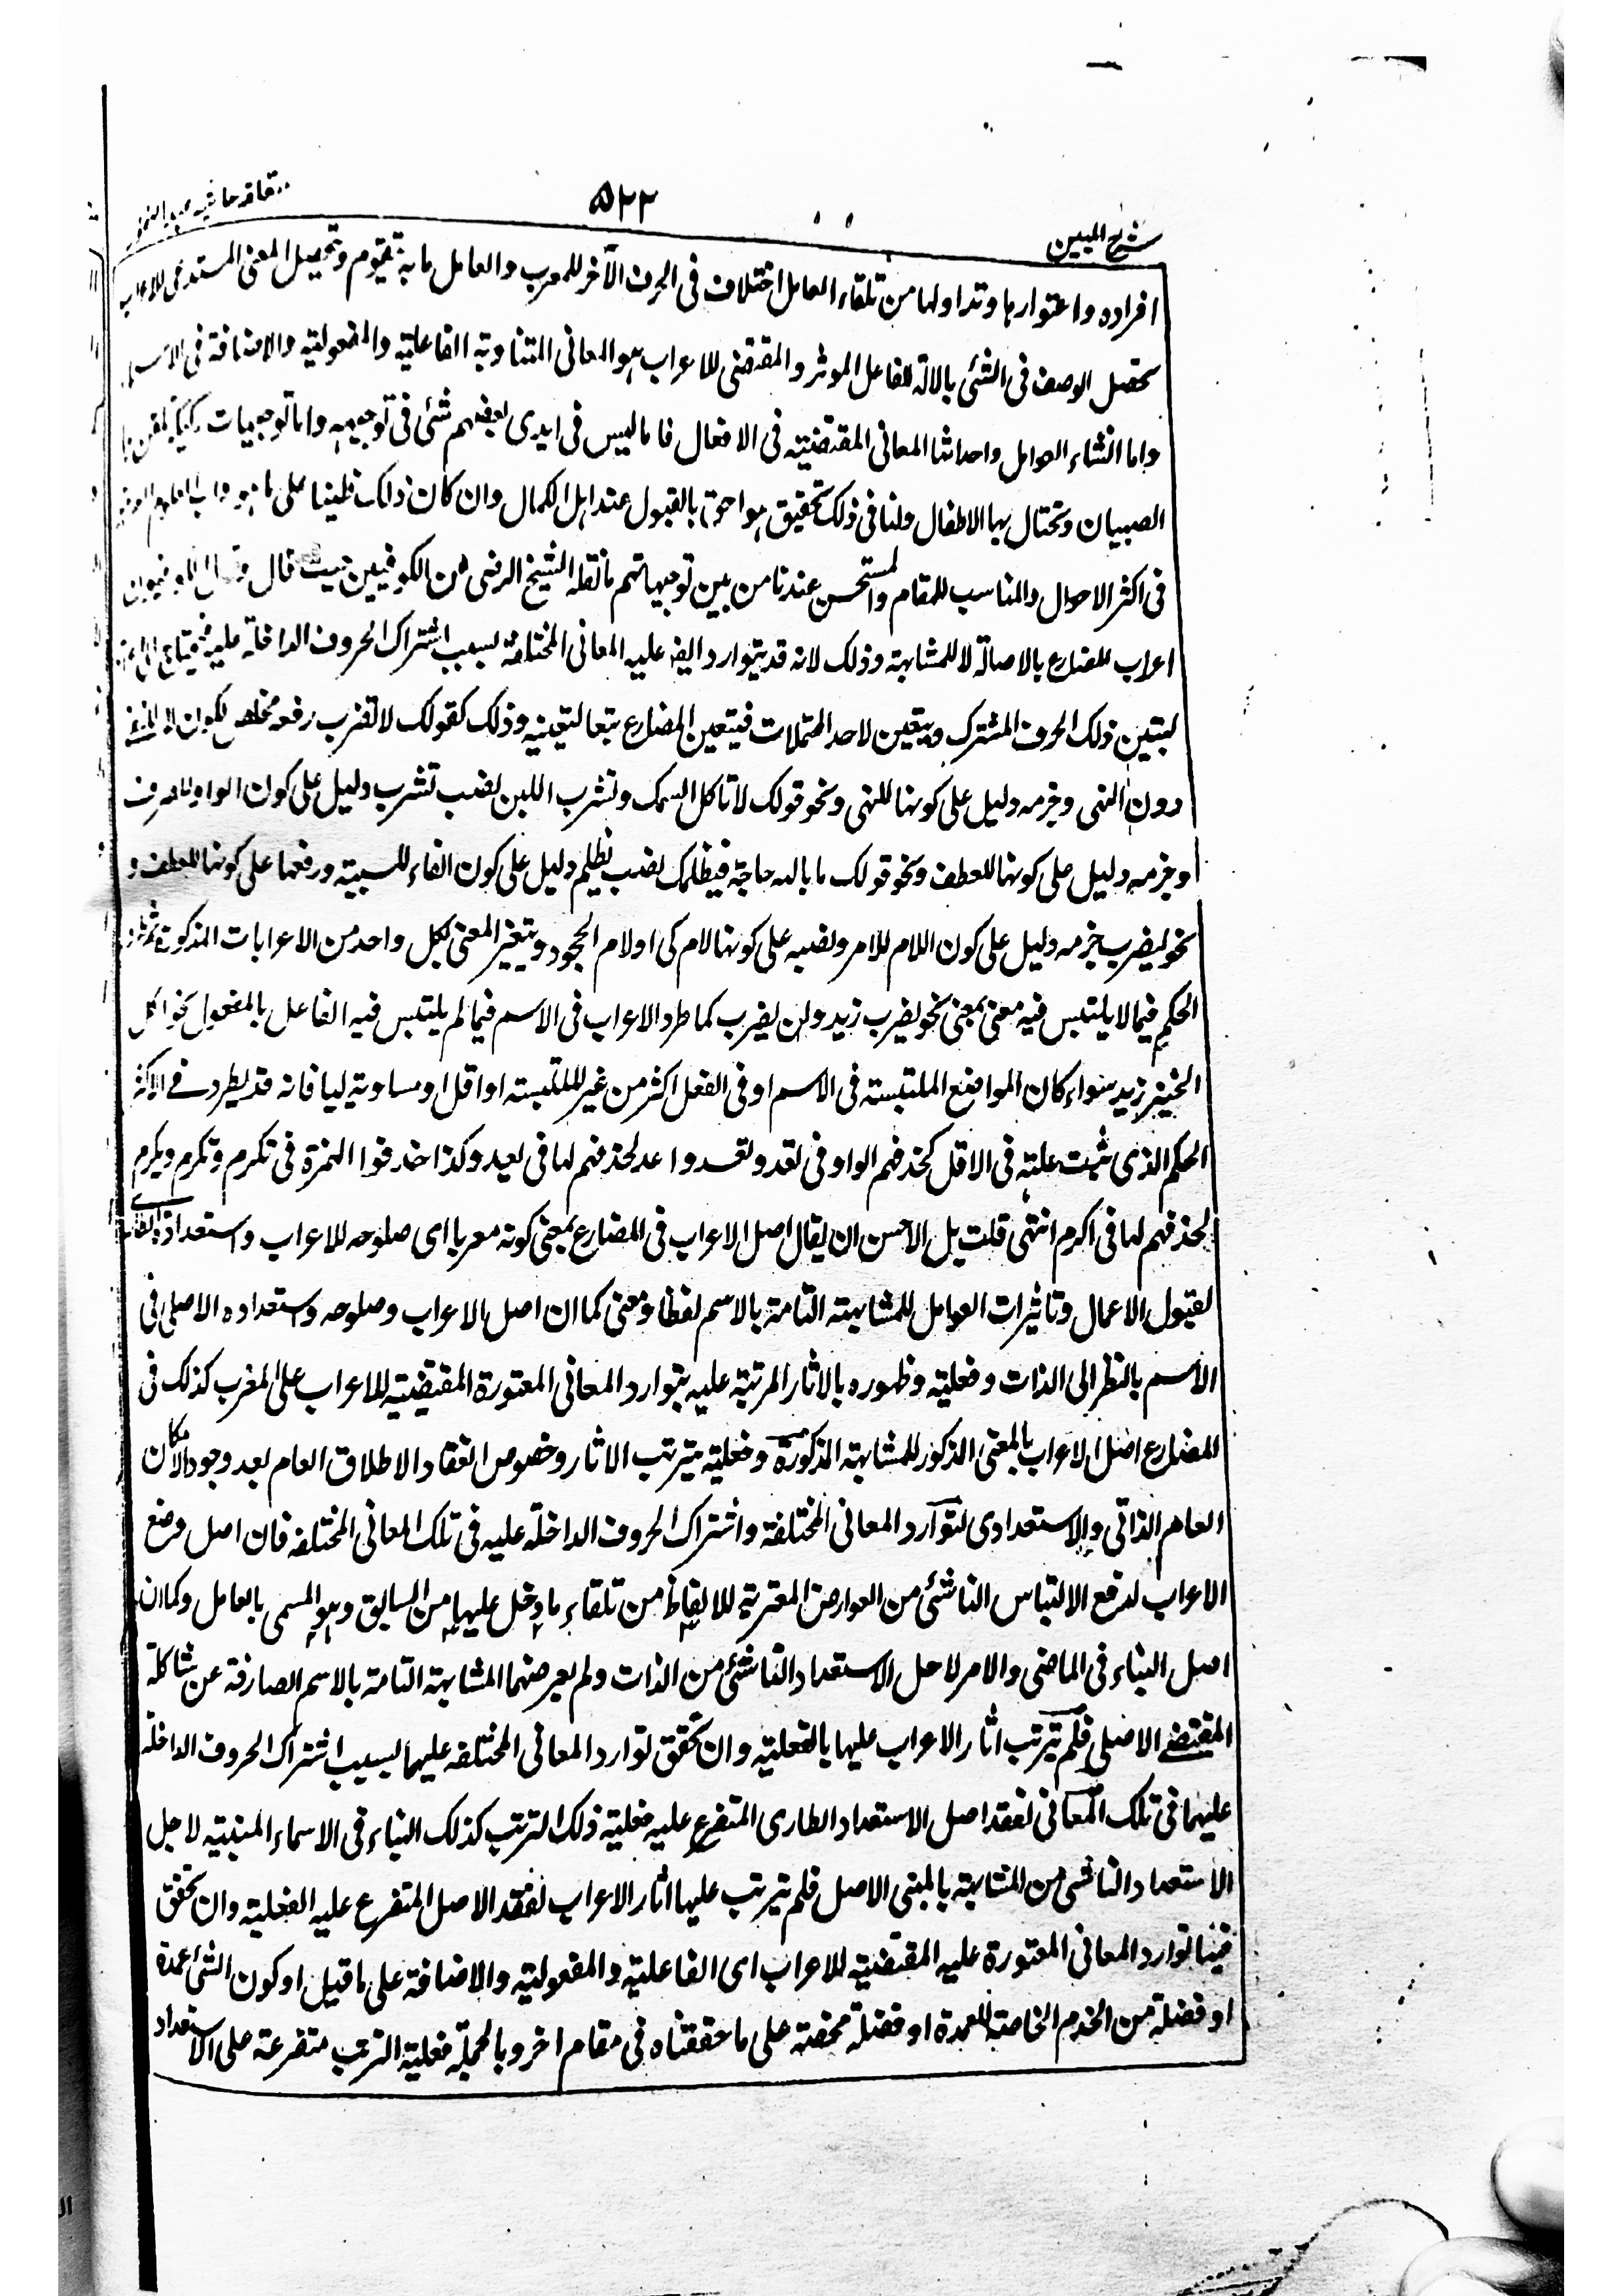 ۵۲۲
شرح المبين
افراده واعتوارها وتداولها من تلقاء العامل اختلاف فى الحرف الآخر للمعرب والعامل ما به تقوم وتحصيل المعنى المستدعى للاعراب
تحصل الوصف فى الشئى بالالة للفاعل الموثر والمقتضى للاعراب هو المعانى المتناوبة الفاعلية والمفعولية والاضافة فى
واما انشاء العوامل واحداثها المعانى المقتضية فى الافعال فاما ليس فى ايدى بعضهم شئى فى توجيهه واما توجيهات ركيكة
الصبيان وتحتال بها الاطفال ولنا فى ذلك تحقيق هو احق بالقبول عند اهل الكمال وان كان ذلك ثقيلا على ما هو داب
فى اكثر الاحوال والمناسب للمقام والمستحسن عندنا من بين توجيهاتهم ما نقله الشيخ الرضى من الكوفيين حيث قال
اعراب المضارع بالاصالة لا للمشابهة وذلك لانه قد يتوارد ايضا عليه المعانى المختلفة بسبب اشتراك الحروف الداخلة عليه فيحتاج الى
ليتبين ذلك الحرف المشترك ويتعين لاحد المحتملات فيتعين المضارع تبعا لتعينه وذلك كقولك لا تضرب رفعه مخلص لكون لا للنفى
دون النهى وجزمه دليل على كونها للنهى ونحو قولك لا تاكل السمك وتشرب اللبن نصب تشرب دليل على كون الواو للصرف
وجزمه دليل على كونها للعطف ونحو قولك ما بالله حاجة فيظلمك نصب يظلم دليل على كون الفاء للسببية ورفعها على كونها للعطف و
نحو ليضرب جزمه دليل على كون اللام للامر ونصبه على كونها لام كى او لام الجحود ويتغير المعنى بكل واحد من الاعرابات المذكورة
الحكم فيما لا يلتبس فيه معنى بمعنى نحو يضرب زيد ولن يضرب كما طرد الاعراب فى الاسم فيما لم يلتبس فيه الفاعل بالمفعول نحو اكل
الخبز زيد سواء كان المواضع الملتبسة فى الاسم او فى الفعل اكثر من غير الملتبسة او اقل او مساوية لها فانه قد يطرد فى الاكثر
الحكم الذى ثبت علته فى الاقل كحذفهم الواو فى تعد ونعد واعد لحذفهم لها فى يعد وكذا حذفوا الهمزة فى تكرم ونكرم ويكرم
لحذفهم لها فى اكرم انتهى قلت بل الاحسن ان يقال اصل الاعراب فى المضارع بمعنى كونه معربا اى صلوحه للاعراب واستعداده
لقبول الاعمال وتاثيرات العوامل للمشابهة التامة بالاسم لفظا ومعنى كما ان اصل الاعراب وصلوحه واستعداده الاصلى فى
الاسم بالنظر الى الذات وفعليته وظهوره بالاثار المرتبة عليه بتوارد المعانى المعتورة المقتضية للاعراب على المغرب كذلك فى
المضارع اصل الاعراب بالمعنى المذكور للمشابهة المذكورة وفعليته بترتب الاثار وخصوص انعقاد الاطلاق العام بعد وجود الامكان
العام الذاتى والاستعدادى لتوارد المعانى المختلفة واشتراك الحروف الداخلة عليه فى تلك المعانى المختلفه فان اصل وضع
الاعراب لدفع الالتباس الناشئى من العوارض المعترية للالفاظ من تلقاء ما دخل عليها من السابق وهو المسمى بالعامل وكما ان
اصل البناء فى الماضى والامر لاجل الاستعداد الناشئى من الذات ولم يعرضهما المشابهة التامة بالاسم الصارفة عن شاكلة
المقتضے الاصلى فلم تترتب اثار الاعراب عليها بالفعلية وان تحقق توارد المعانى المختلفه عليهما بسبب اشتراك الحروف الداخلة
عليهما فى تلك المعانى لفقد اصل الاستعداد الطارى المتفرع عليه فعلية ذلك الترتب كذلك البناء فى الاسماء المبنية لاجل
الاستعداد الناشى من المشابهة بالمبنى الاصل فلم تترتب عليها اثار الاعراب لفقد الاصل المتفرع عليه الفعلية وان تحقق
فيها توارد المعانى المعتورة عليه المقتضية للاعراب اى الفاعلية والمفعولية والاضافة على ما قيل او كون الشئى عمدة
او فضلة من الخدم الخاصة للعمدة او فضلة محضة على ما حققناه فى مقام اخر وبالجملة فعلية الترتب متفرعة على الاستعداد